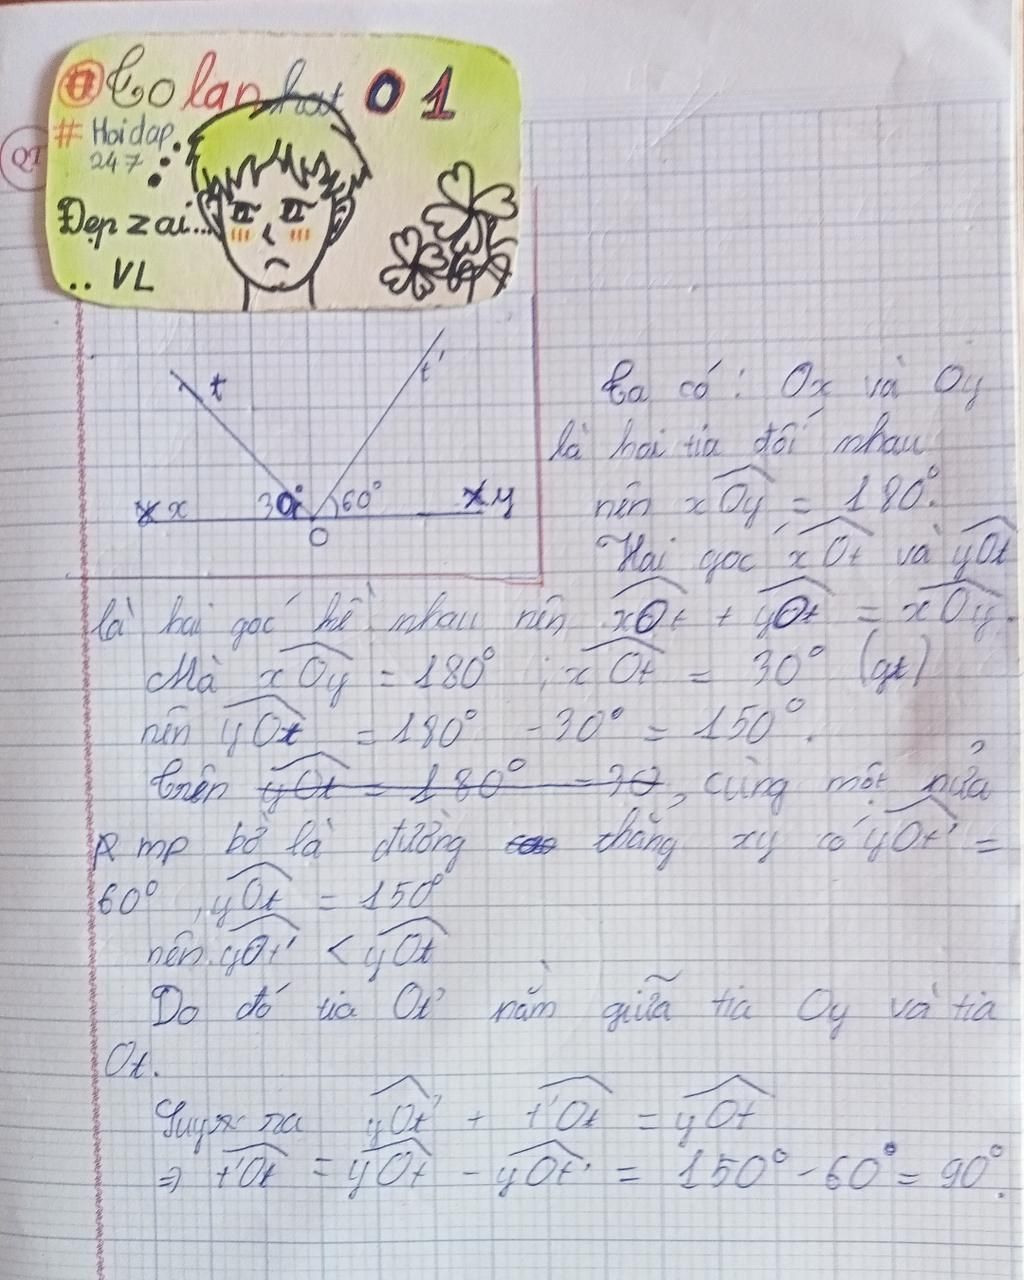 Colanhat 01
# Hoidap
247
Đẹp zai...
.. VL
t
t'
x
30°
60°
y
O
Ta có: Ox và Oy
là hai tia đối nhau
nên xOy = 180°.
Hai góc xOt và yOt
là hai góc kề nhau nên xOt + yOt = xOy.
Mà xOy = 180° ; xOt = 30° (gt)
nên yOt = 180° - 30° = 150°.
Trên yOt = 180° = 30, cùng một nửa
mp bờ là đường thẳng xy có yOt' =
60°, yOt = 150°
nên yOt' < yOt
Do đó tia Ot' nằm giữa tia Oy và tia
Ot.
Suy ra yOt' + t'Ot = yOt
=> t'Ot = yOt - yOt' = 150° - 60° = 90°.